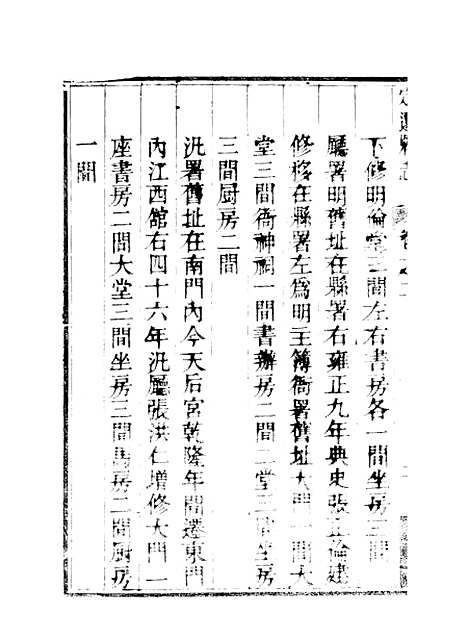 下修明倫堂三間左右書房各一間坐房三間
廳署明舊址在縣署右雍正九年典史張正倫建
修移在縣署左為明主簿衙署舊址大門一間大
堂三間衙神祠一間書辦房二間二堂三間坐房
三間厨房二間
汛署舊址在南門內今天后宮乾隆年間遷東門
內江西舘右四十六年汛廳張洪仁增修大門一
座書房二間大堂三間坐房三間馬房二間厨房
一間